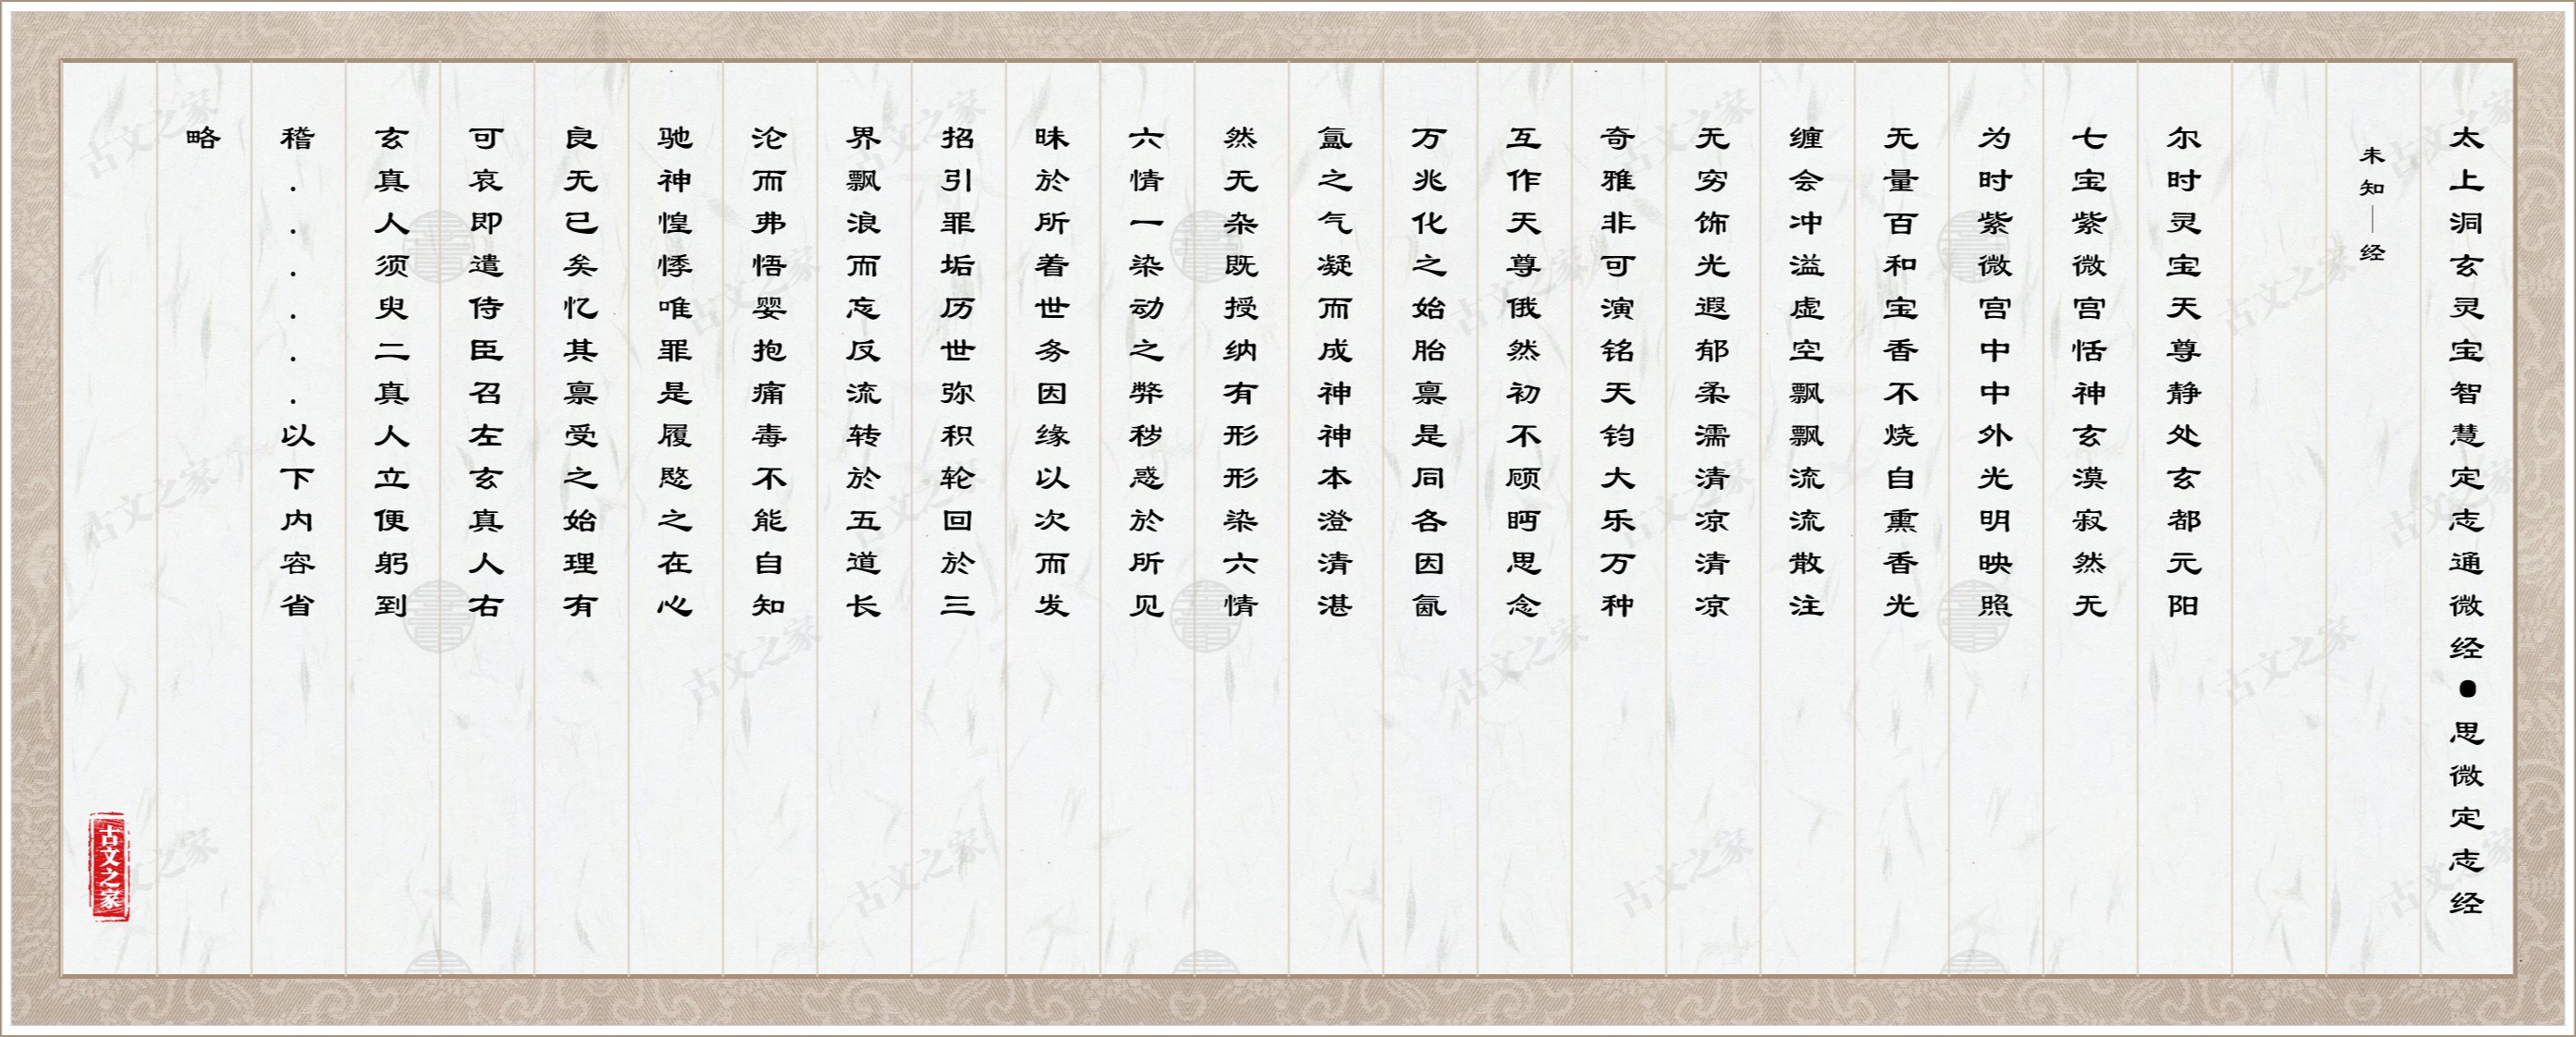 太上洞玄灵宝智慧定志通微经●思微定志经
未知｜经
尔时灵宝天尊静处玄都元阳
七宝紫微宫恬神玄漠寂然无
为时紫微宫中中外光明映照
无量百和宝香不烧自熏香光
缠会冲溢虚空飘飘流流散注
无穷饰光遐郁柔濡清凉清凉
奇雅非可演铭天钧大乐万种
互作天尊俄然初不顾眄思念
万兆化之始胎禀是同各因氤
氲之气凝而成神神本澄清湛
然无杂既授纳有形形染六情
六情一染动之弊秽惑於所见
昧於所着世务因缘以次而发
招引罪垢历世弥积轮回於三
界飘浪而忘反流转於五道长
沦而弗悟婴抱痛毒不能自知
驰神惶悸唯罪是履愍之在心
良无已矣忆其禀受之始理有
可哀即遣侍臣召左玄真人右
玄真人须臾二真人立便躬到
稽......以下内容省
略
古文之家